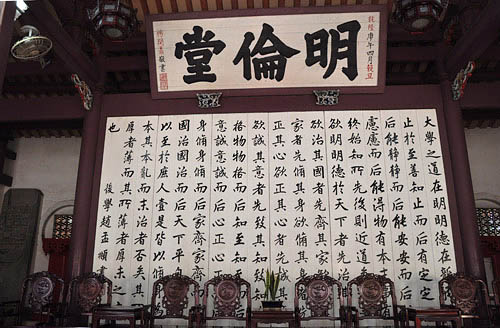 明倫堂
乾隆庚午四月穀旦
大學之道在明明德在
止於至善知止而后有定
后能靜靜而后能安安而后
慮慮而后能得物有本末
終始知所先後則近道
欲明明德於天下者先治
欲治其國者先齊其家
家者先脩其身欲脩其
正其心欲正其心者先誠其
欲誠其意者先致其知
格物物格而后知至知至
意誠意誠而后心正心正
身脩身脩而后家齊家齊
國治國治而后天下平自
以至於庶人壹是皆以脩
本其本亂而末治者否矣其
厚者薄而其所薄者厚未之
也
後學趙孟頫書